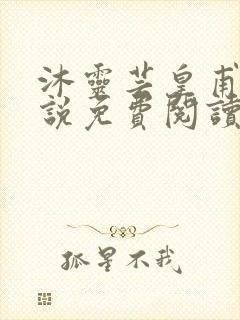 沐靈芸皇甫
說免費閱讀
孤星不我